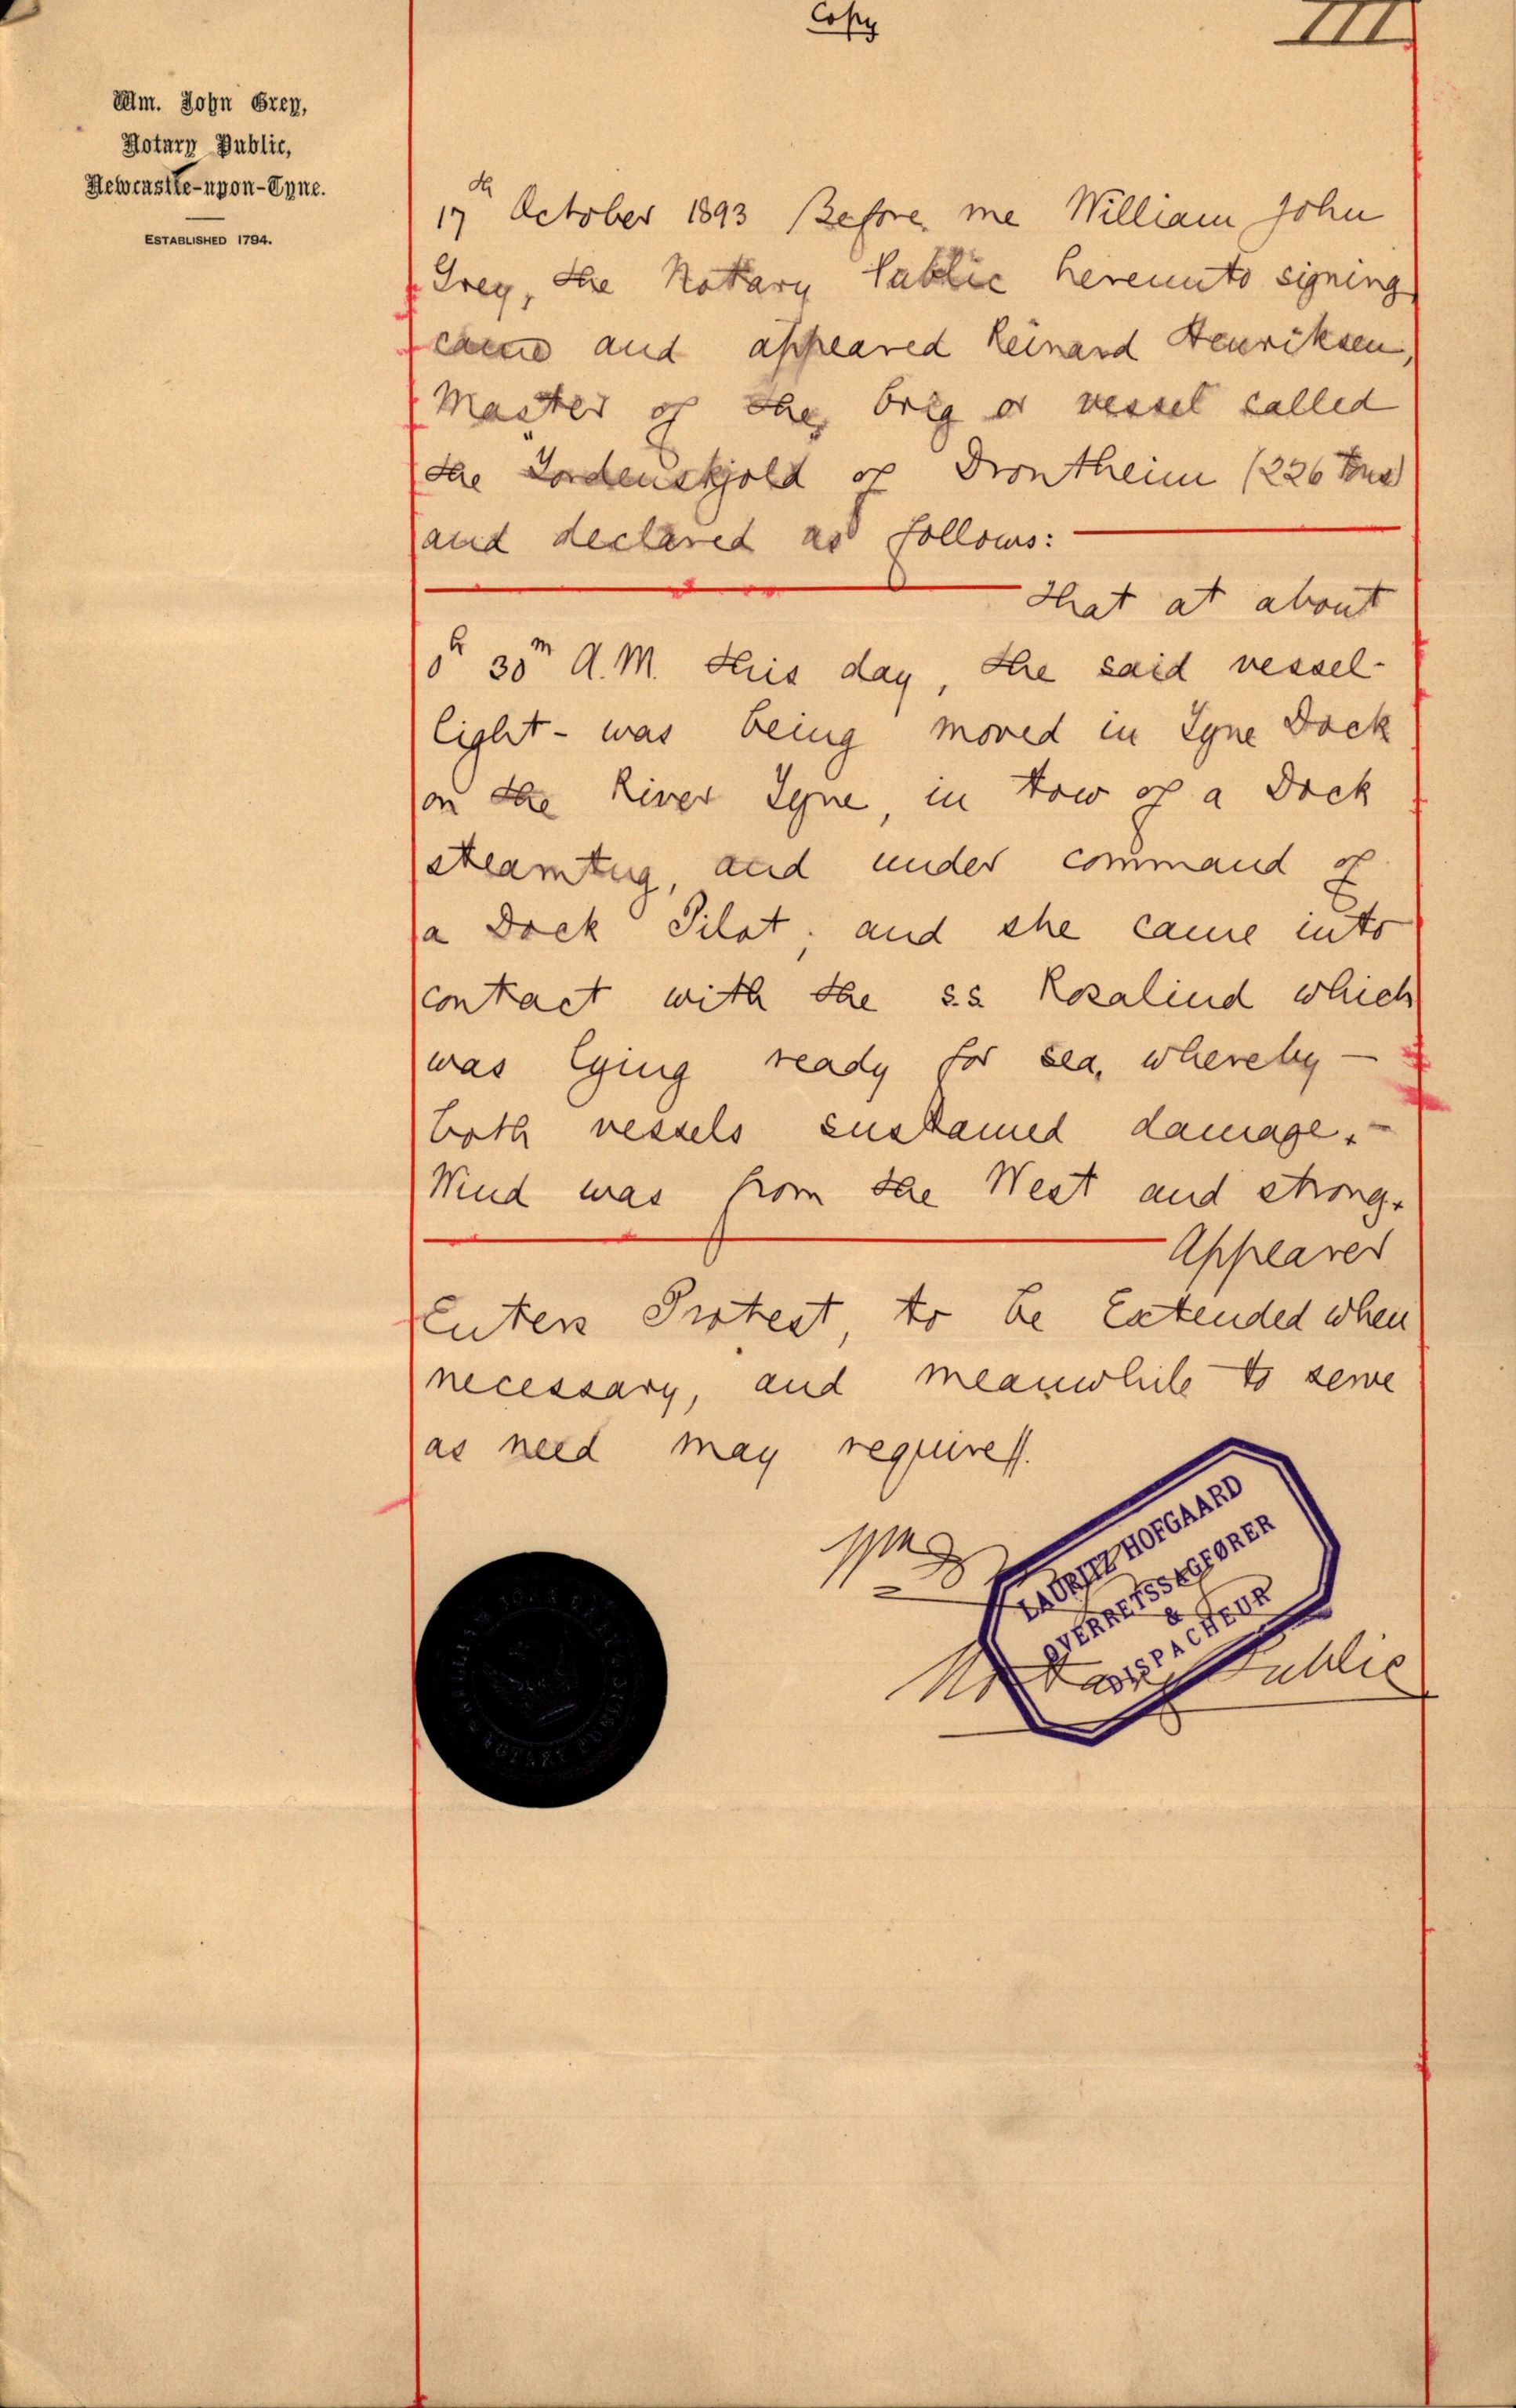 Copy
III
Wm. John Grey,
Notary Public,
Newcastle-upon-Tyne.
ESTABLISHED 1794.
17th October 1893 Before me William John
Grey, the Notary Public hereunto signing
came and appeared Reinard Henriksen,
Master of the brig or vessel called
the Tordenskjold of Drontheim (226 Tons)
and declared as follows:
That at about
30m A.M. this day, the said vessel-
light- was being moved in Tyne Dock
on the River Tyne, in tow of a Dock
steamtug, and under command of
a Dock Pilot; and she came into
contact with the s.s Rosalind which
was lying ready for sea, whereby
both vessels sustained damage.
Wind was from the West and strong.
Appearer
Enters Protest, to be Extended when
necessary, and meanwhile to serve
as need may require.
LAURITZ HOFGAARD
OVERRETSSAGFØRER
&
DISPACHEUR
Notary Public
NOTARY PUBLIC